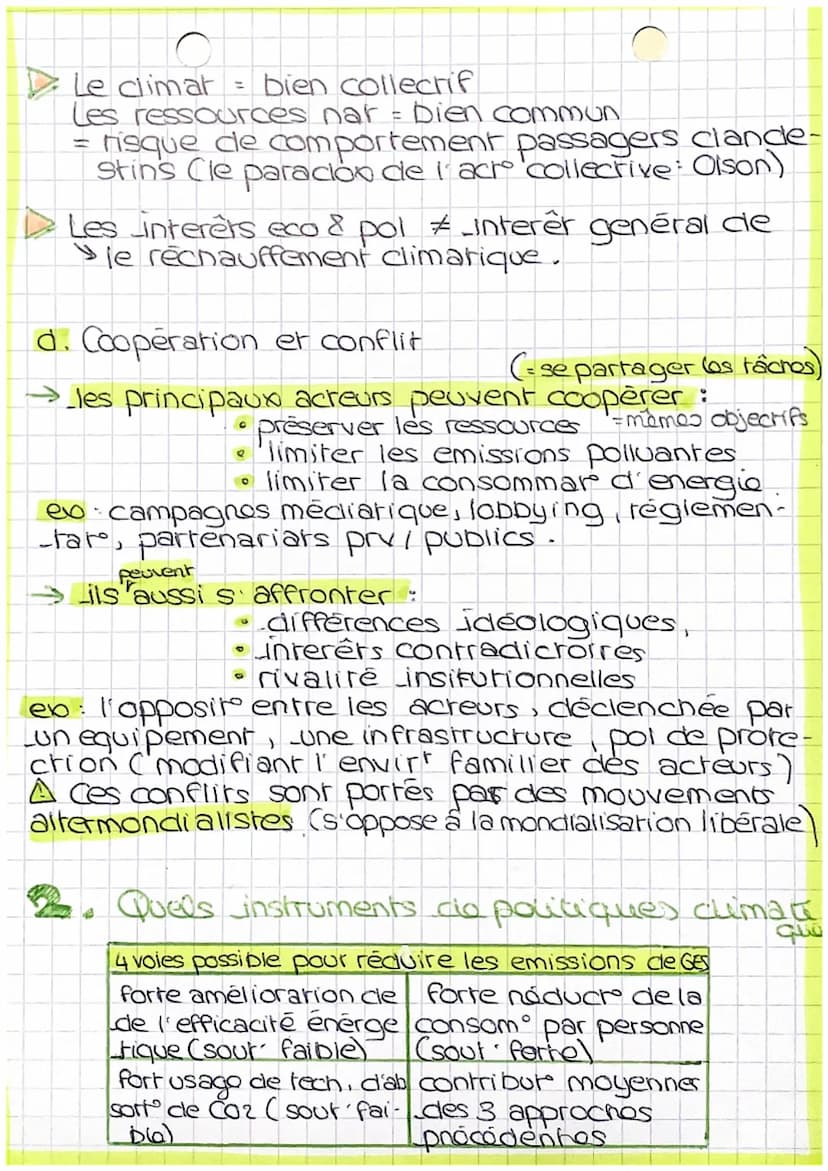 Le climat = bien collectif
Les ressources nat = bien commun
= risque de comportement passagers clande-
stins (le paradox de l'act° collective : Olson)
Les interêts eco & pol ≠ interêt général de
↘ le réchauffement climatique.
d. Coopération et conflit
(= se partager les tâches)
→ les principaux acteurs peuvent coopérer :
• préserver les ressources =mêmes objectifs
• limiter les emissions polluantes
• limiter la consommat° d'energie
ex : campagnes médiatique, lobbying, réglemen-
-tat°, partenariats prv / publics.
peuvent
→ ils aussi s'affronter :
• différences idéologiques,
• interêts contradictoires
• rivalité insitutionnelles
ex : l'opposit° entre les acteurs, déclenchée par
un equipement, une infrastructure, pol de prote-
ction (modifiant l'envirt familier des acteurs)
⚠ Ces conflits sont portés par des mouvements
altermondialistes (s'oppose à la mondialisation libérale)
2. Quels instruments de politiques climati
que
4 voies possible pour réduire les emissions de GES
forte amélioration de
de l'efficacité énérge
tique (sout' faible)
forte réduct° de la
consom° par personne
(sout' forte)
fort usage de tech. d'ab
sort° de CO2 (sout' fai-
ble)
contribut° moyenner
des 3 approches
précédentes